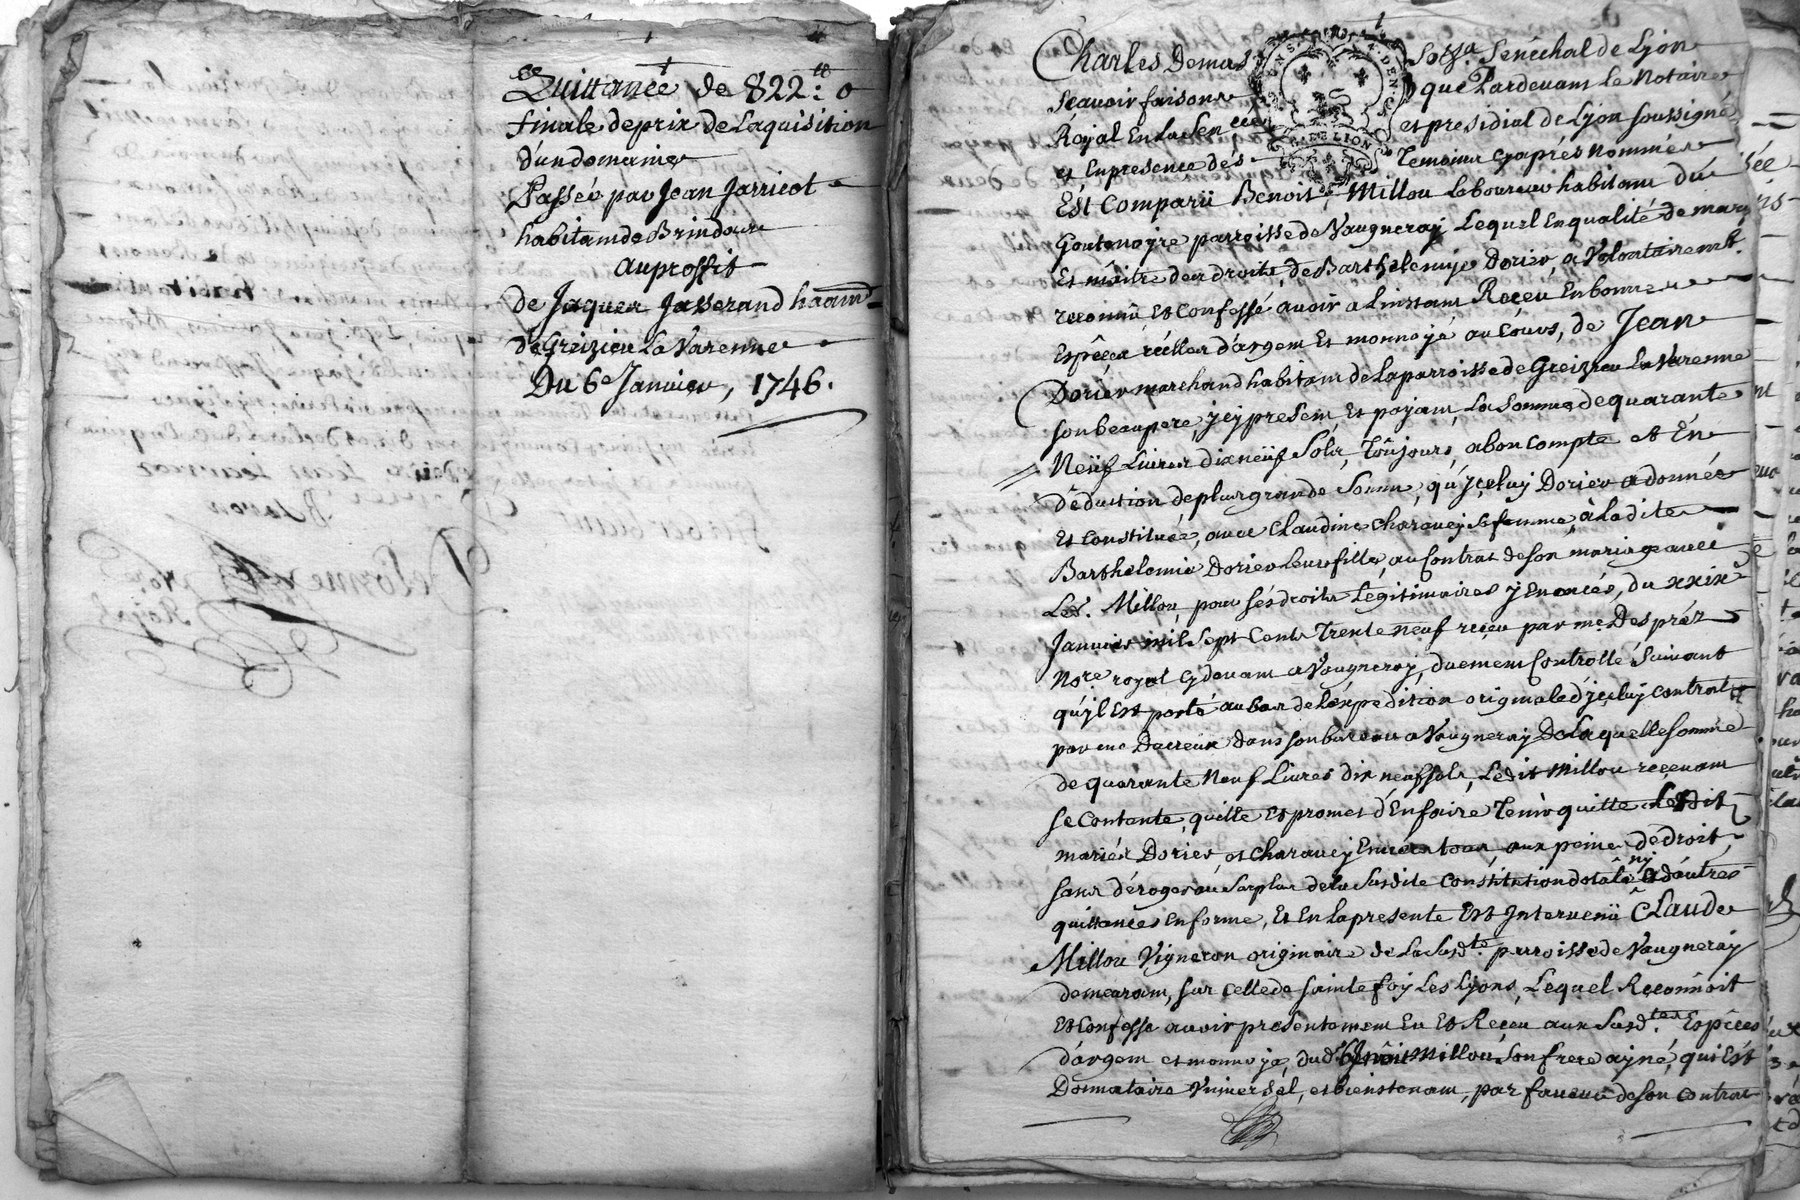 Quittance de 822 tt: 0
finale de prix de Laquisition
d'un domaine
Passée par Jean Jarricot
habitam de Brindas
au proffit
de Jaques Jasserand haãm
de Greizieu La Varenne
Du 6e Janvier, 1746.
Charles Demas Sotsa. Senéchal de Lyon
Scavoir faisons que Pardevant le Notaire
Royal En La Sencée et presidial de Lyon soussigné
et En presence des Temoins cyaprés nommés
Est Comparü Benoit Millou laboureur habitam du
Goutenoyre parroisse de Vaugneray Lequel En qualité de mary
Et maitre des droits de Barthelemye Dorier, a Volontairemt.
reconnu Et Confessé avoir a Linstam Reçeu En bonnes
Espêces réelles d'argem Et monnoye au Cours, de Jean
Dorier marchand habitam de La parroisse de Greizieu La Varenne
son beaupere, jcy presem Et payam, La Somme de quarante
Neuf Livres dix neuf Sols, Toûjours, a bon compte et En
déduction de plus grande Somme, qu'jceluy Dorier a donnée
Et Constituée, avec Claudine Charavey sa femme, a Ladite
Barthelemie Dorier Leur fille, au Contrat de Son mariage avec
Led. Millou, pour ses droits Legitimaires y Enoncés, du xxix
Janvier mil Sept Cents Trente neuf reçeu par me. Despréz
Nore royal cy devam a Vaugneray, duemem Controllé Suivant
qu'jl Est porté au bas de L'éxpedition originale d'jceluy contrat
par me Ducreux dans son bureau a Vaugneray De Laquelle Somme
de quarante Neuf Livres dix neuf sols, Ledit Millou reçevam
Se Contante, quitte Et promet d'En faire Tenir quitte Lesdits
mariés Dorier et Charavey Envers tous, aux peines de droit,
sans déroger au Surplus de la Susdite Constitution dotale, ny a d'autres
quittances en forme, Et En La presente Est Intervenü Claude
Millou Vigneron originaire de La Susdte. parroisse de Vaugneray
demeuram, sur celle de Sainte foy Les Lyons, Lequel Reçonnoit
Et Confesse avoir presentemem Eu Et Reçeu aux Susdtes. Espêces
d'argem et monnoye, dud. Benoit Millou, Son frere ayné, qui Est
Donnataire Vniversel, et bienstenam, par faveur de Son Contrat